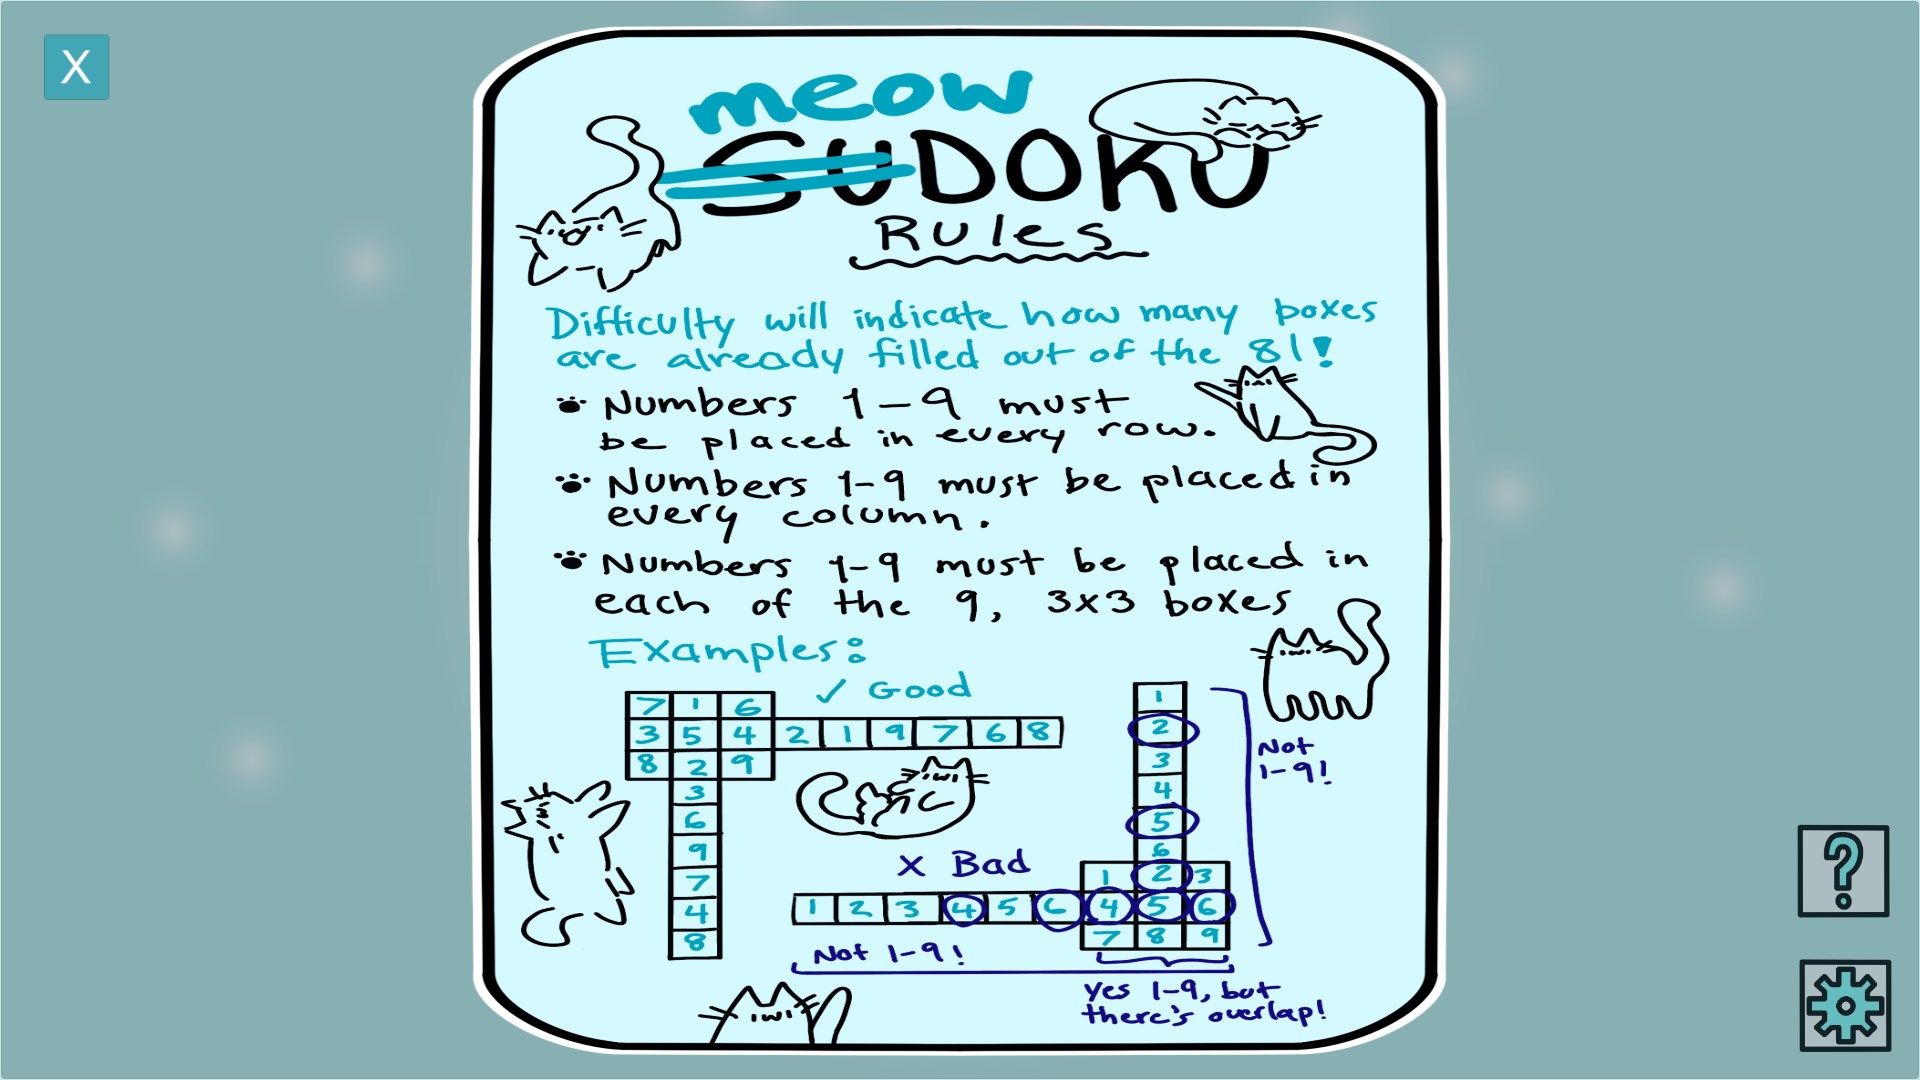 X
meow
SUDOKU
Rules
Difficulty will indicate how many boxes
are already filled out of the 81!
Numbers 1-9 must
be placed in every row.
Numbers 1-9 must be placed in
every column.
Numbers 1-9 must be placed in
each of the 9, 3x3 boxes
Examples:
✓ Good
7 1 6
3 5 4 2 1 9 7 6 8
8 2 9
3
6
9
7
4
8
1
2
3
4
5
6
Not
1-9!
X Bad
1 2 3
1 2 3 4 5 6 4 5 6
7 8 9
Not 1-9!
yes 1-9, but
there's overlap!
?